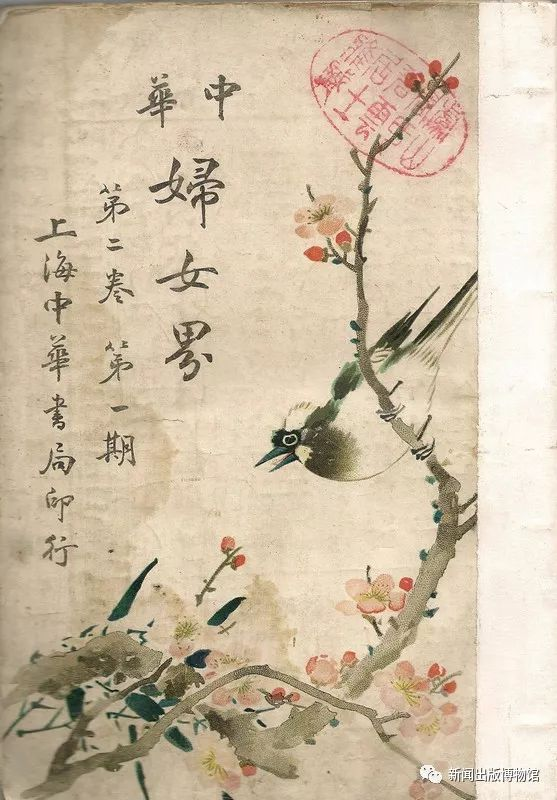 中華
婦女界
第二卷 第一期
上海中華書局印行
新闻出版博物馆